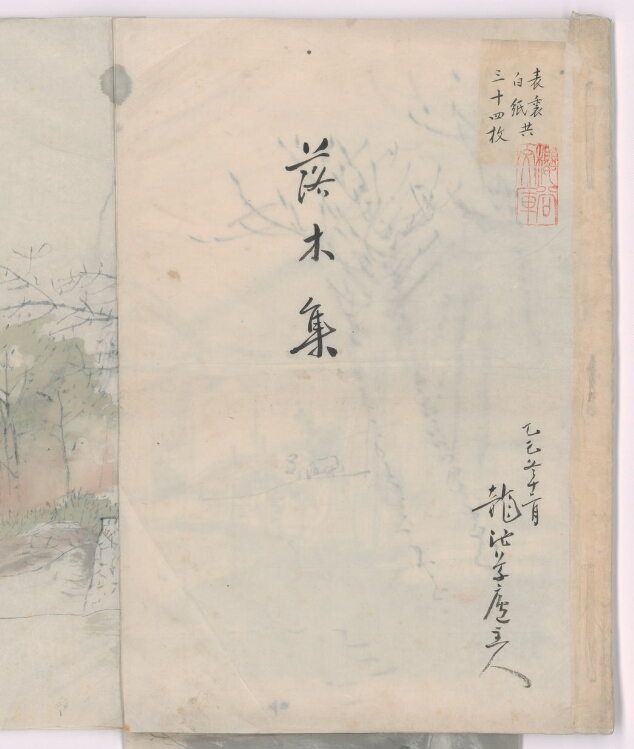 表裏
白紙共
三十四枚
落木集
乙巳冬十一月
龍池草廬主人